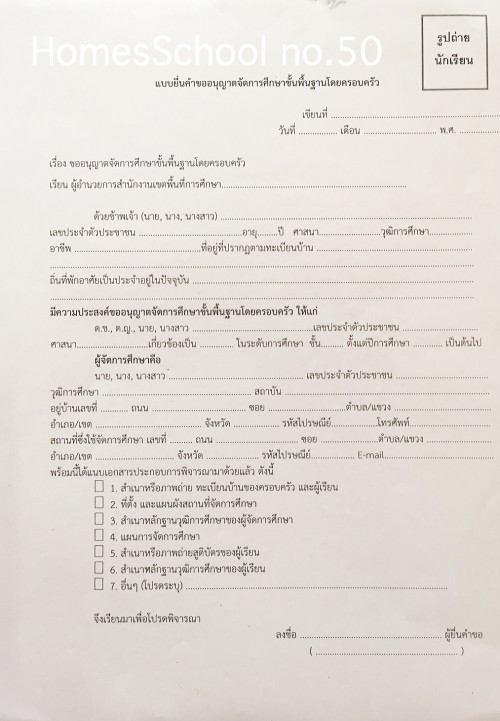 HomesSchool no.50
รูปถ่าย
นักเรียน
แบบยื่นคำขออนุญาตจัดการศึกษาขั้นพื้นฐานโดยครอบครัว
เขียนที่ ........................................................
วันที่ .............. เดือน .......................... พ.ศ. ..................
เรื่อง ขออนุญาตจัดการศึกษาขั้นพื้นฐานโดยครอบครัว
เรียน ผู้อำนวยการสำนักงานเขตพื้นที่การศึกษา..............................................................
ด้วยข้าพเจ้า (นาย, นาง, นางสาว) ....................................................................................
เลขประจำตัวประชาชน ...................................อายุ........ปี ศาสนา.....................วุฒิการศึกษา...............
อาชีพ ...........................................ที่อยู่ที่ปรากฏตามทะเบียนบ้าน .....................................................
.............................................................................................................................................
ถิ่นที่พักอาศัยเป็นประจำอยู่ในปัจจุบัน ..............................................................................................
.............................................................................................................................................
มีความประสงค์ขออนุญาตจัดการศึกษาขั้นพื้นฐานโดยครอบครัว ให้แก่
ด.ช., ด.ญ., นาย, นางสาว .........................................เลขประจำตัวประชาชน ..........................
ศาสนา........................เกี่ยวข้องเป็น ............ ในระดับการศึกษา ชั้น......... ตั้งแต่ปีการศึกษา ............ เป็นต้นไป
ผู้จัดการศึกษาคือ
นาย, นาง, นางสาว .............................................. เลขประจำตัวประชาชน ................................
วุฒิการศึกษา .................................................. สถาบัน .....................................................................
อยู่บ้านเลขที่ .......... ถนน .................................. ซอย ...........................ตำบล/แขวง ..........................
อำเภอ/เขต ..................................... จังหวัด .................. รหัสไปรษณีย์................โทรศัพท์.....................
สถานที่ซึ่งใช้จัดการศึกษา เลขที่ ........ ถนน ............................ ซอย .....................ตำบล/แขวง ......................
อำเภอ/เขต ........................... จังหวัด ................... รหัสไปรษณีย์............... E-mail.....................................
พร้อมนี้ได้แนบเอกสารประกอบการพิจารณามาด้วยแล้ว ดังนี้
1. สำเนาหรือภาพถ่าย ทะเบียนบ้านของครอบครัว และผู้เรียน
2. ที่ตั้ง และแผนผังสถานที่จัดการศึกษา
3. สำเนาหลักฐานวุฒิการศึกษาของผู้จัดการศึกษา
4. แผนการจัดการศึกษา
5. สำเนาหรือภาพถ่ายสูติบัตรของผู้เรียน
6. สำเนาหลักฐานวุฒิการศึกษาของผู้เรียน
7. อื่นๆ (โปรดระบุ) ........................................................................................
จึงเรียนมาเพื่อโปรดพิจารณา
ลงชื่อ ................................................ ผู้ยื่นคำขอ
( ................................................ )